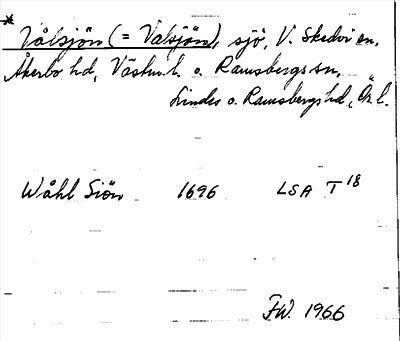 * Vålsjön (= Valsjön), sjö, V. Skedvi sn,
Åkerbo hd, Västm. l. o. Ramsbergs sn,
Lindes o. Ramsbergs hd, Ör. l.
Wåhl Siön 1696 LSA T 18
F.W. 1966